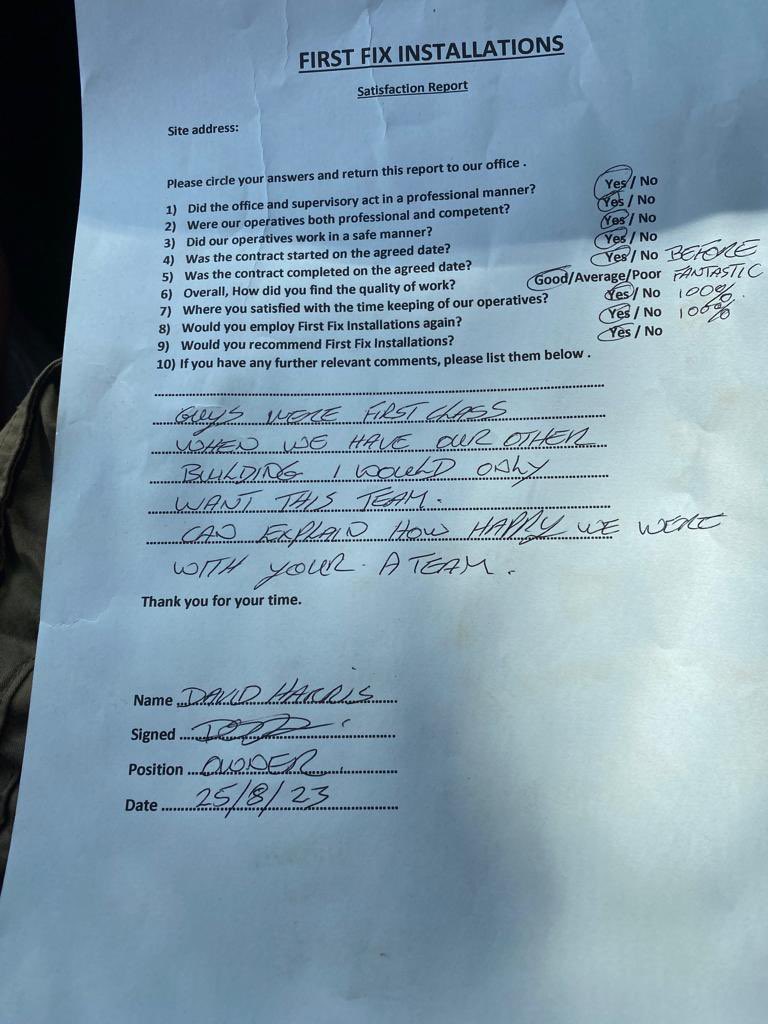 FIRST FIX INSTALLATIONS
Satisfaction Report
Site address:
Please circle your answers and return this report to our office .
1) Did the office and supervisory act in a professional manner? Yes / No
2) Were our operatives both professional and competent? Yes / No
3) Did our operatives work in a safe manner? Yes / No
4) Was the contract started on the agreed date? Yes / No
5) Was the contract completed on the agreed date? Yes / No BEFORE
6) Overall, How did you find the quality of work? Good/Average/Poor FANTASTIC
7) Where you satisfied with the time keeping of our operatives? Yes / No 100%.
8) Would you employ First Fix Installations again? Yes / No 100%
9) Would you recommend First Fix Installations? Yes / No
10) If you have any further relevant comments, please list them below .
GUYS WERE FIRST CLASS
WHEN WE HAVE OUR OTHER
BUILDING I WOULD ONLY
WANT THIS TEAM.
CAN EXPLAIN HOW HAPPY WE WERE
WITH YOUR A TEAM.
Thank you for your time.
Name DAVID HARRIS
Signed
Position OWNER
Date 25/8/23